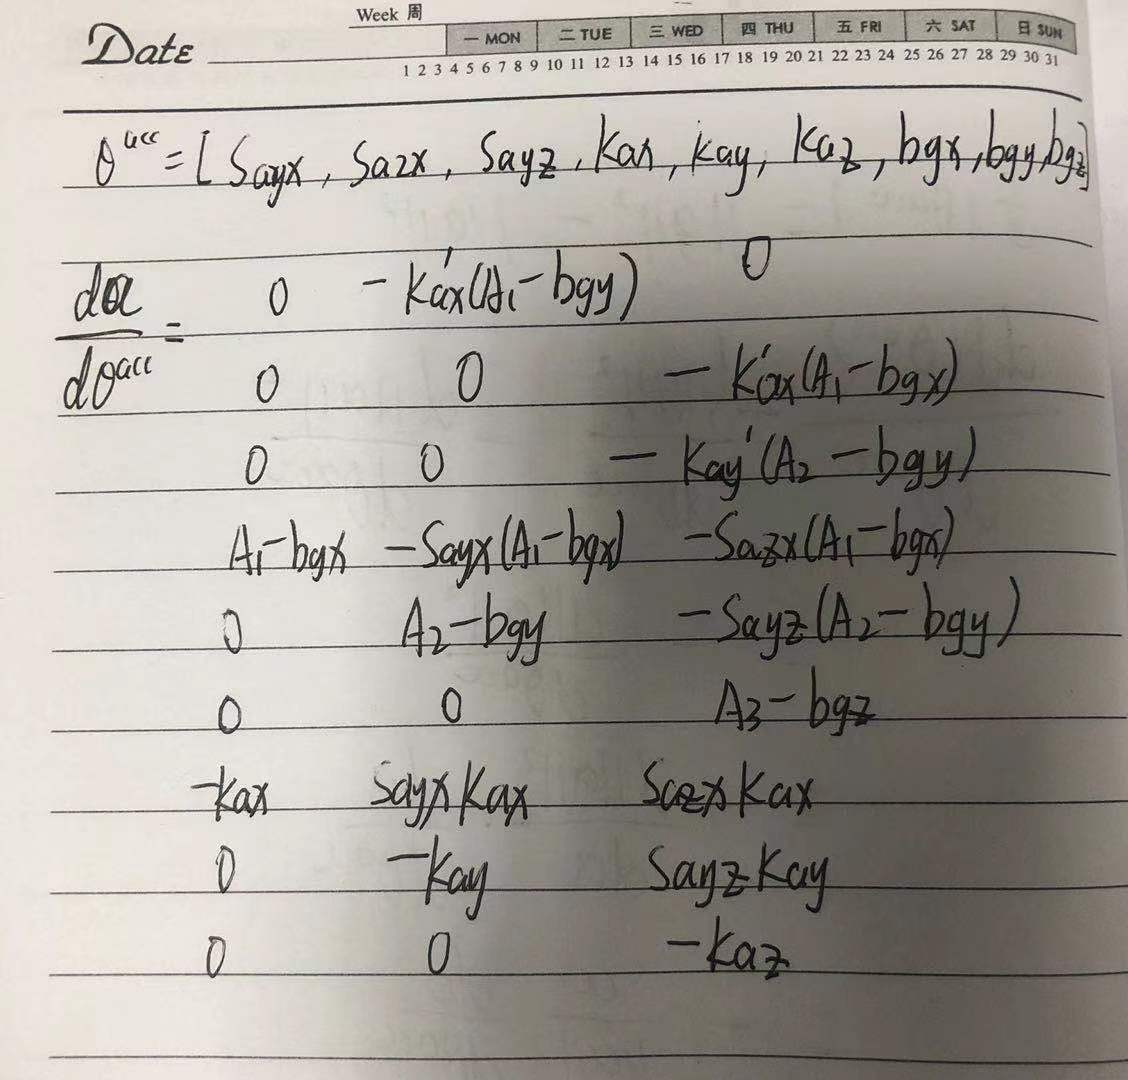 Week 周
Date 一 MON 二 TUE 三 WED 四 THU 五 FRI 六 SAT 日 SUN
1 2 3 4 5 6 7 8 9 10 11 12 13 14 15 16 17 18 19 20 21 22 23 24 25 26 27 28 29 30 31
θ^acc = [Sayx, Sazx, Sayz, Kax, Kay, Kaz, bgx, bgy, bgz]
da/dθ^acc = 0 -Kax'(A₁-bgy) 0
0 0 -Kax'(A₁-bgx)
0 0 -Kay'(A₂-bgy)
A₁-bgx -Sayx(A₁-bgx) -Sazx(A₁-bgx)
0 A₂-bgy -Sayz(A₂-bgy)
0 0 A₃-bgz
-Kax SayxKax SazxKax
0 -Kay SayzKay
0 0 -Kaz